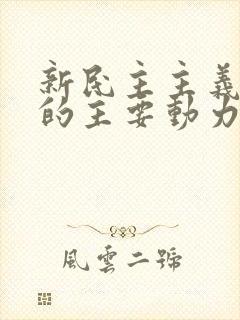 新民主主義
的主要動力
風雲二號